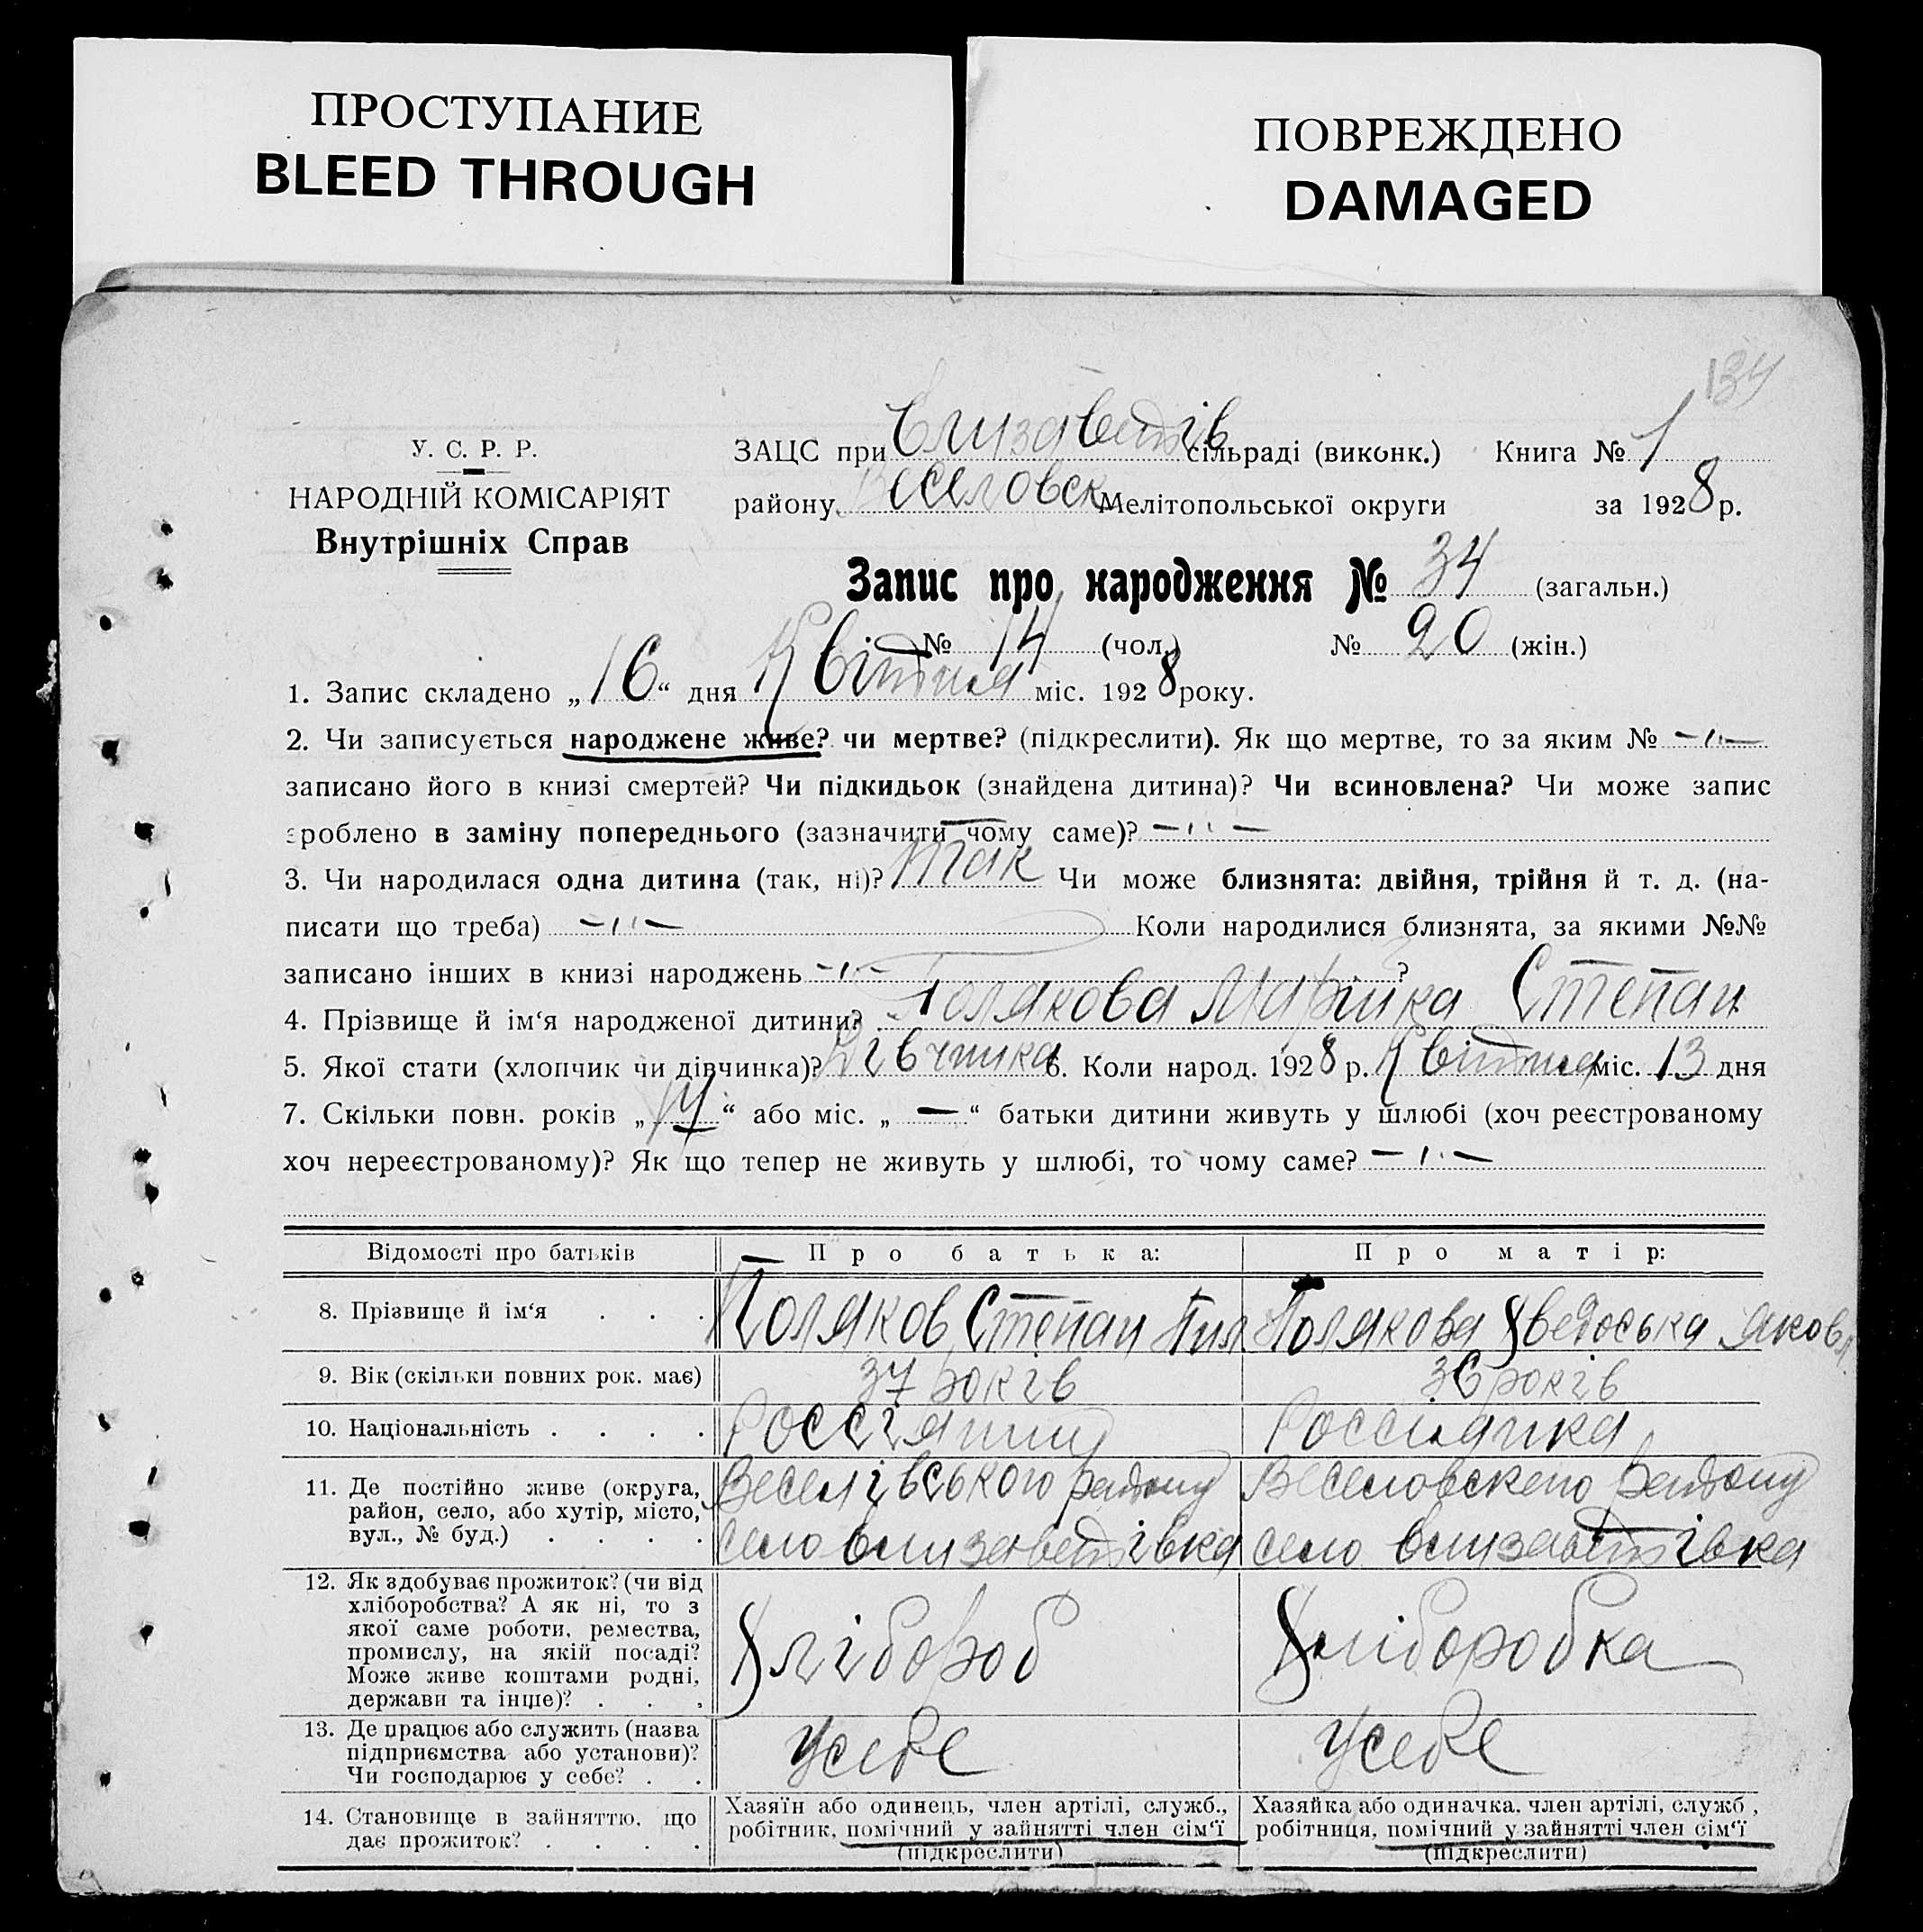 ПРОСТУПАНИЕ
BLEED THROUGH
ПОВРЕЖДЕНО
DAMAGED
134
У. С. Р. Р.
НАРОДНІЙ КОМІСАРІЯТ
Внутрішніх Справ
ЗАЦС при Елизаветів сільраді (виконк.) Книга № 1
району Веселовск Мелітопольської округи за 1928 р.
Запис про народження № 34 (загальн.)
№ 14 (чол.) № 20 (жін.)
1. Запис складено „16“ дня Квітня міс. 1928 року.
2. Чи записується народжене живе? чи мертве? (підкреслити). Як що мертве, то за яким № -"-
записано його в книзі смертей? Чи підкидьок (знайдена дитина)? Чи всиновлена? Чи може запис
зроблено в заміну попереднього (зазначити чому саме)? -"-
3. Чи народилася одна дитина (так, ні)? так Чи може близнята: двійня, трійня й т. д. (на-
писати що треба) -"- Коли народилися близнята, за якими №№
записано інших в книзі народжень -"- ?
4. Прізвище й ім‘я народженої дитини? Полякова Марійка Степан
5. Якої стати (хлопчик чи дівчинка)? Дівчинка 6. Коли народ. 1928 р. Квітня міс. 13 дня
7. Скільки повн. років „14“ або міс. „—“ батьки дитини живуть у шлюбі (хоч реєстрованому
хоч нереєстрованому)? Як що тепер не живуть у шлюбі, то чому саме? -"-
Відомості про батьків Про батька: Про матір:
8. Прізвище й ім‘я . . . Поляков Степан Пил Полякова Хведоська Яковл
9. Вік (скільки повних рок. має) 37 років 36 років
10. Національність . . . . Россіянин Россіянка
11. Де постійно живе (округа,
район, село, або хутір, місто,
вул., № буд.) . . . .
Веселівського району
село Елизаветівка
Веселовского району
село Елизаветівка
12. Як здобуває прожиток? (чи від
хліборобства? А як ні, то з
якої саме роботи, ремества,
промислу, на якій посаді?
Може живе коштами родні,
держави та інще)? . . .
Хлібороб
Хліборобка
13. Де працює або служить (назва
підприємства або установи)?
Чи господарює у себе? . .
У себе
У себе
14. Становище в зайняттю, що
дає прожиток? . . . .
Хазяїн або одинець, член артілі, служб.,
робітник, помічний у зайнятті член сім‘ї
(підкреслити)
Хазяйка або одиначка, член артілі, служб ,
робітниця, помічний у зайнятті член сім‘ї
(підкреслити)